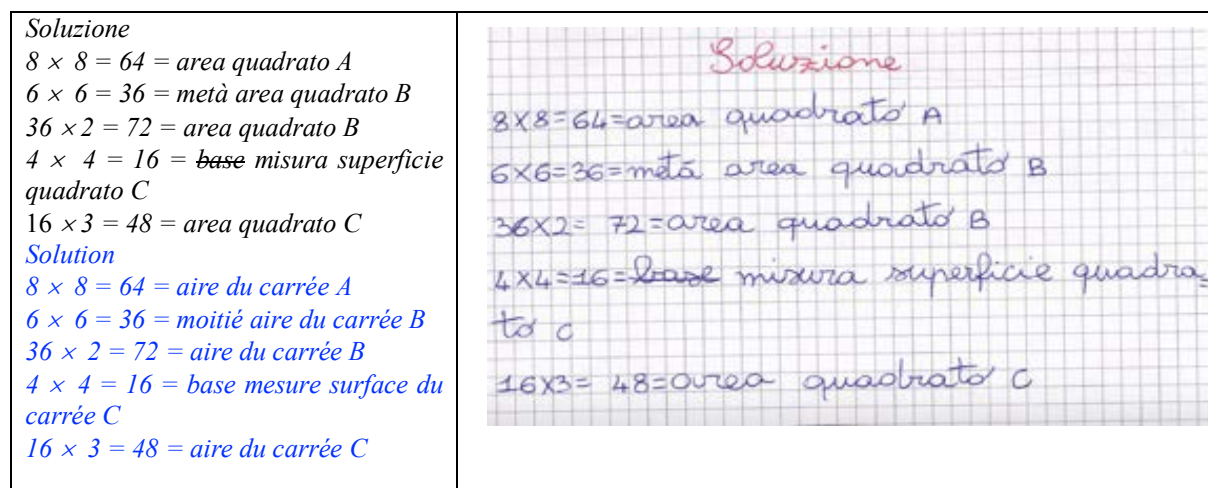 Soluzione
8 × 8 = 64 = area quadrato A
6 × 6 = 36 = metà area quadrato B
36 × 2 = 72 = area quadrato B
4 × 4 = 16 = base misura superficie
quadrato C
16 × 3 = 48 = area quadrato C
Solution
8 × 8 = 64 = aire du carrée A
6 × 6 = 36 = moitié aire du carrée B
36 × 2 = 72 = aire du carrée B
4 × 4 = 16 = base mesure surface du
carrée C
16 × 3 = 48 = aire du carrée C
Soluzione
8X8=64=area quadrato A
6X6=36=metà area quadrato B
36X2= 72=area quadrato B
4X4=16=base misura superficie quadra=
to C
16X3= 48=area quadrato C